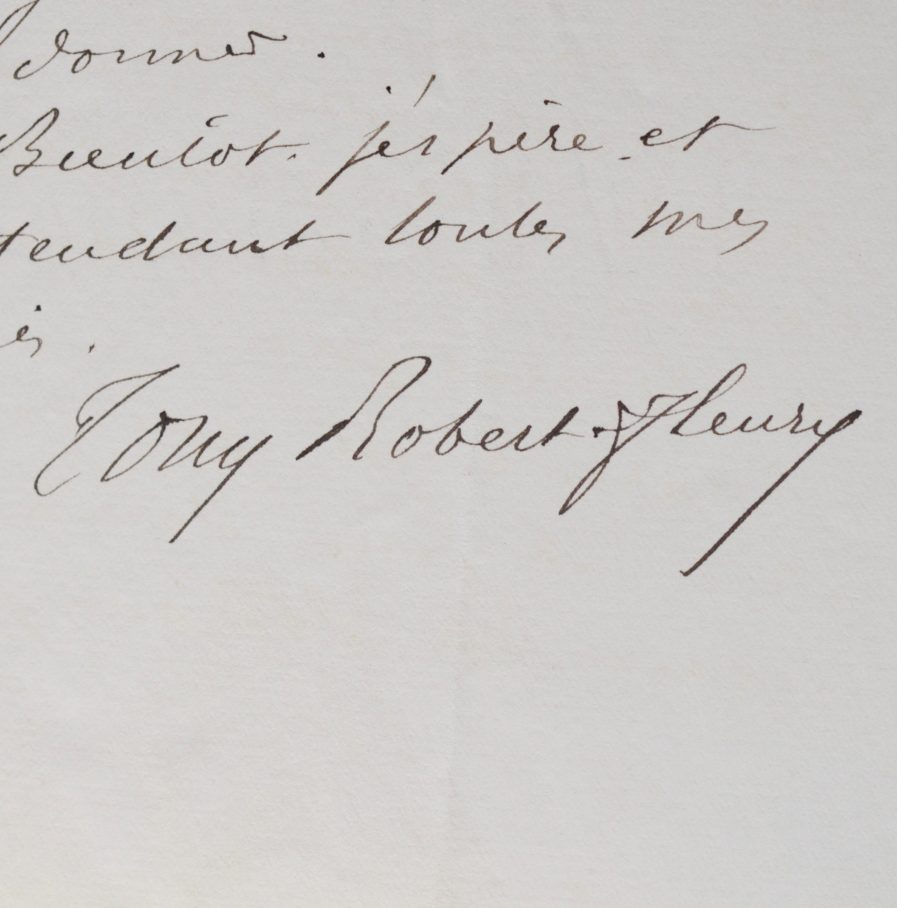 donner.
Bientôt. j'espère et
tendant toutes mes
és.
Tony Robert-Fleury